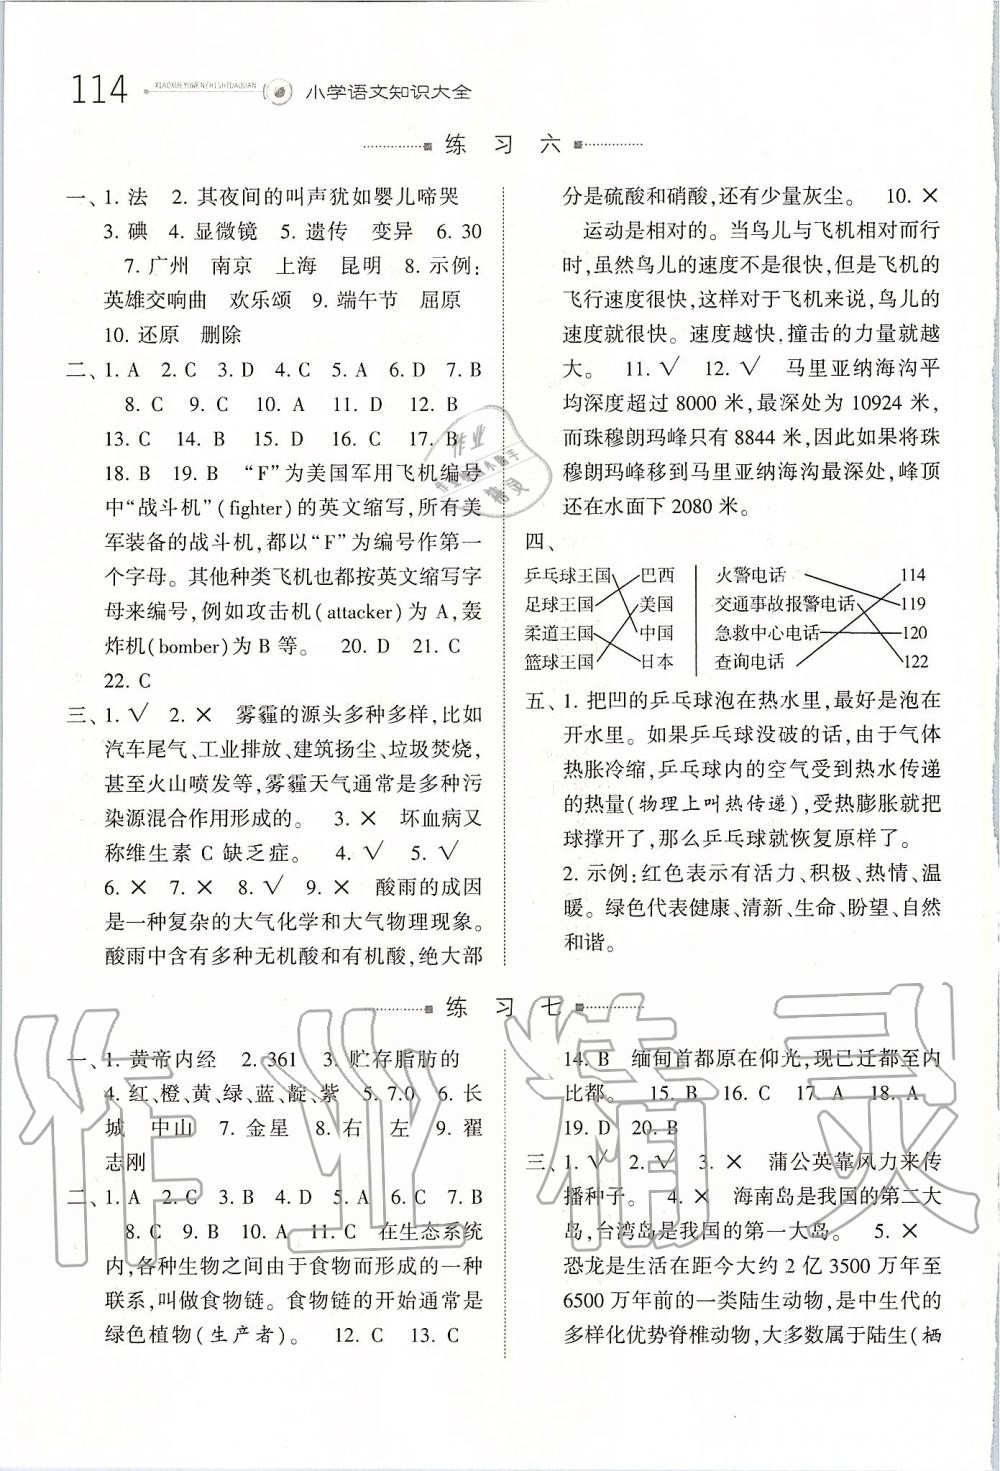 114
XIAOXUEYUWENZHISHIDAQUAN
小学语文知识大全
练 习 六
一、1. 法 2. 其夜间的叫声犹如婴儿啼哭
3. 碘 4. 显微镜 5. 遗传 变异 6. 30
7. 广州 南京 上海 昆明 8. 示例:
英雄交响曲 欢乐颂 9. 端午节 屈原
10. 还原 删除
二、1. A 2. C 3. D 4. C 5. A 6. D 7. B
8. C 9. C 10. A 11. D 12. B
13. C 14. B 15. D 16. C 17. B
18. B 19. B “F”为美国军用飞机编号
中“战斗机”(fighter)的英文缩写,所有美
军装备的战斗机,都以“F”为编号作第一
个字母。其他种类飞机也都按英文缩写字
母来编号,例如攻击机(attacker)为 A,轰
炸机(bomber)为 B 等。 20. D 21. C
22. C
三、1. √ 2. × 雾霾的源头多种多样,比如
汽车尾气、工业排放、建筑扬尘、垃圾焚烧,
甚至火山喷发等,雾霾天气通常是多种污
染源混合作用形成的。 3. × 坏血病又
称维生素 C 缺乏症。 4. √ 5. √
6. × 7. × 8. √ 9. × 酸雨的成因
是一种复杂的大气化学和大气物理现象。
酸雨中含有多种无机酸和有机酸,绝大部
分是硫酸和硝酸,还有少量灰尘。 10. ×
运动是相对的。当鸟儿与飞机相对而行
时,虽然鸟儿的速度不是很快,但是飞机的
飞行速度很快,这样对于飞机来说,鸟儿的
速度就很快。速度越快,撞击的力量就越
大。 11. √ 12. √ 马里亚纳海沟平
均深度超过 8000 米,最深处为 10924 米,
而珠穆朗玛峰只有 8844 米,如果将珠
穆朗玛峰移到马里亚纳海沟最深处,峰顶
还在水面下 2080 米。
四、
乒乓球王国 巴西 火警电话 114
足球王国 美国 交通事故报警电话 119
柔道王国 中国 急救中心电话 120
篮球王国 日本 查询电话 122
五、1. 把凹的乒乓球泡在热水里,最好是泡在
开水里。如果乒乓球没破的话,由于气体
热胀冷缩,乒乓球内的空气受到热水传递
的热量(物理上叫热传递),受热膨胀就把
球撑开了,那么乒乓球就恢复原样了。
2. 示例:红色表示有活力、积极、热情、温
暖。绿色代表健康、清新、生命、盼望、自然
和谐。
练 习 七
一、1. 黄帝内经 2. 361 3. 贮存脂肪的
4. 红、橙、黄、绿、蓝、靛、紫 5. 7.0 6. 长
城 中山 7. 金星 8. 右 左 9. 翟
志刚
二、1. A 2. C 3. B 4. D 5. A 6. C 7. B
8. C 9. B 10. A 11. C 在生态系统
内,各种生物之间由于食物而形成的一种
联系,叫做食物链。食物链的开始通常是
绿色植物(生产者)。 12. C 13. C
14. B 缅甸首都原在仰光,现已迁都至内
比都。 15. B 16. C 17. A 18. A
19. D 20. B
三、1. √ 2. √ 3. × 蒲公英靠风力来传
播种子。 4. × 海南岛是我国的第二大
岛,台湾岛是我国的第一大岛。 5. ×
恐龙是生活在距今大约 2 亿 3500 万年至
6500 万年前的一类陆生动物,是中生代的
多样化优势脊椎动物,大多数属于陆生(栖
作业精灵